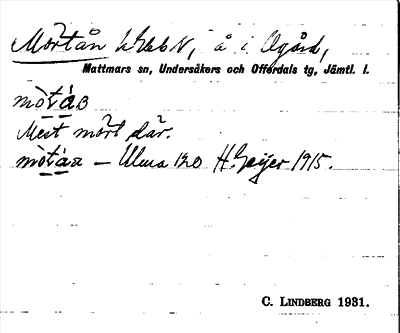 Mörtån å i Ogård,
Mattmars sn, Undersåkers och Offerdals tg, Jämtl. l.
mòtáɜ
Mest mört där.
mòtáɜ – Ulma 120 H. Geijer 1915.
C. LINDBERG 1931.